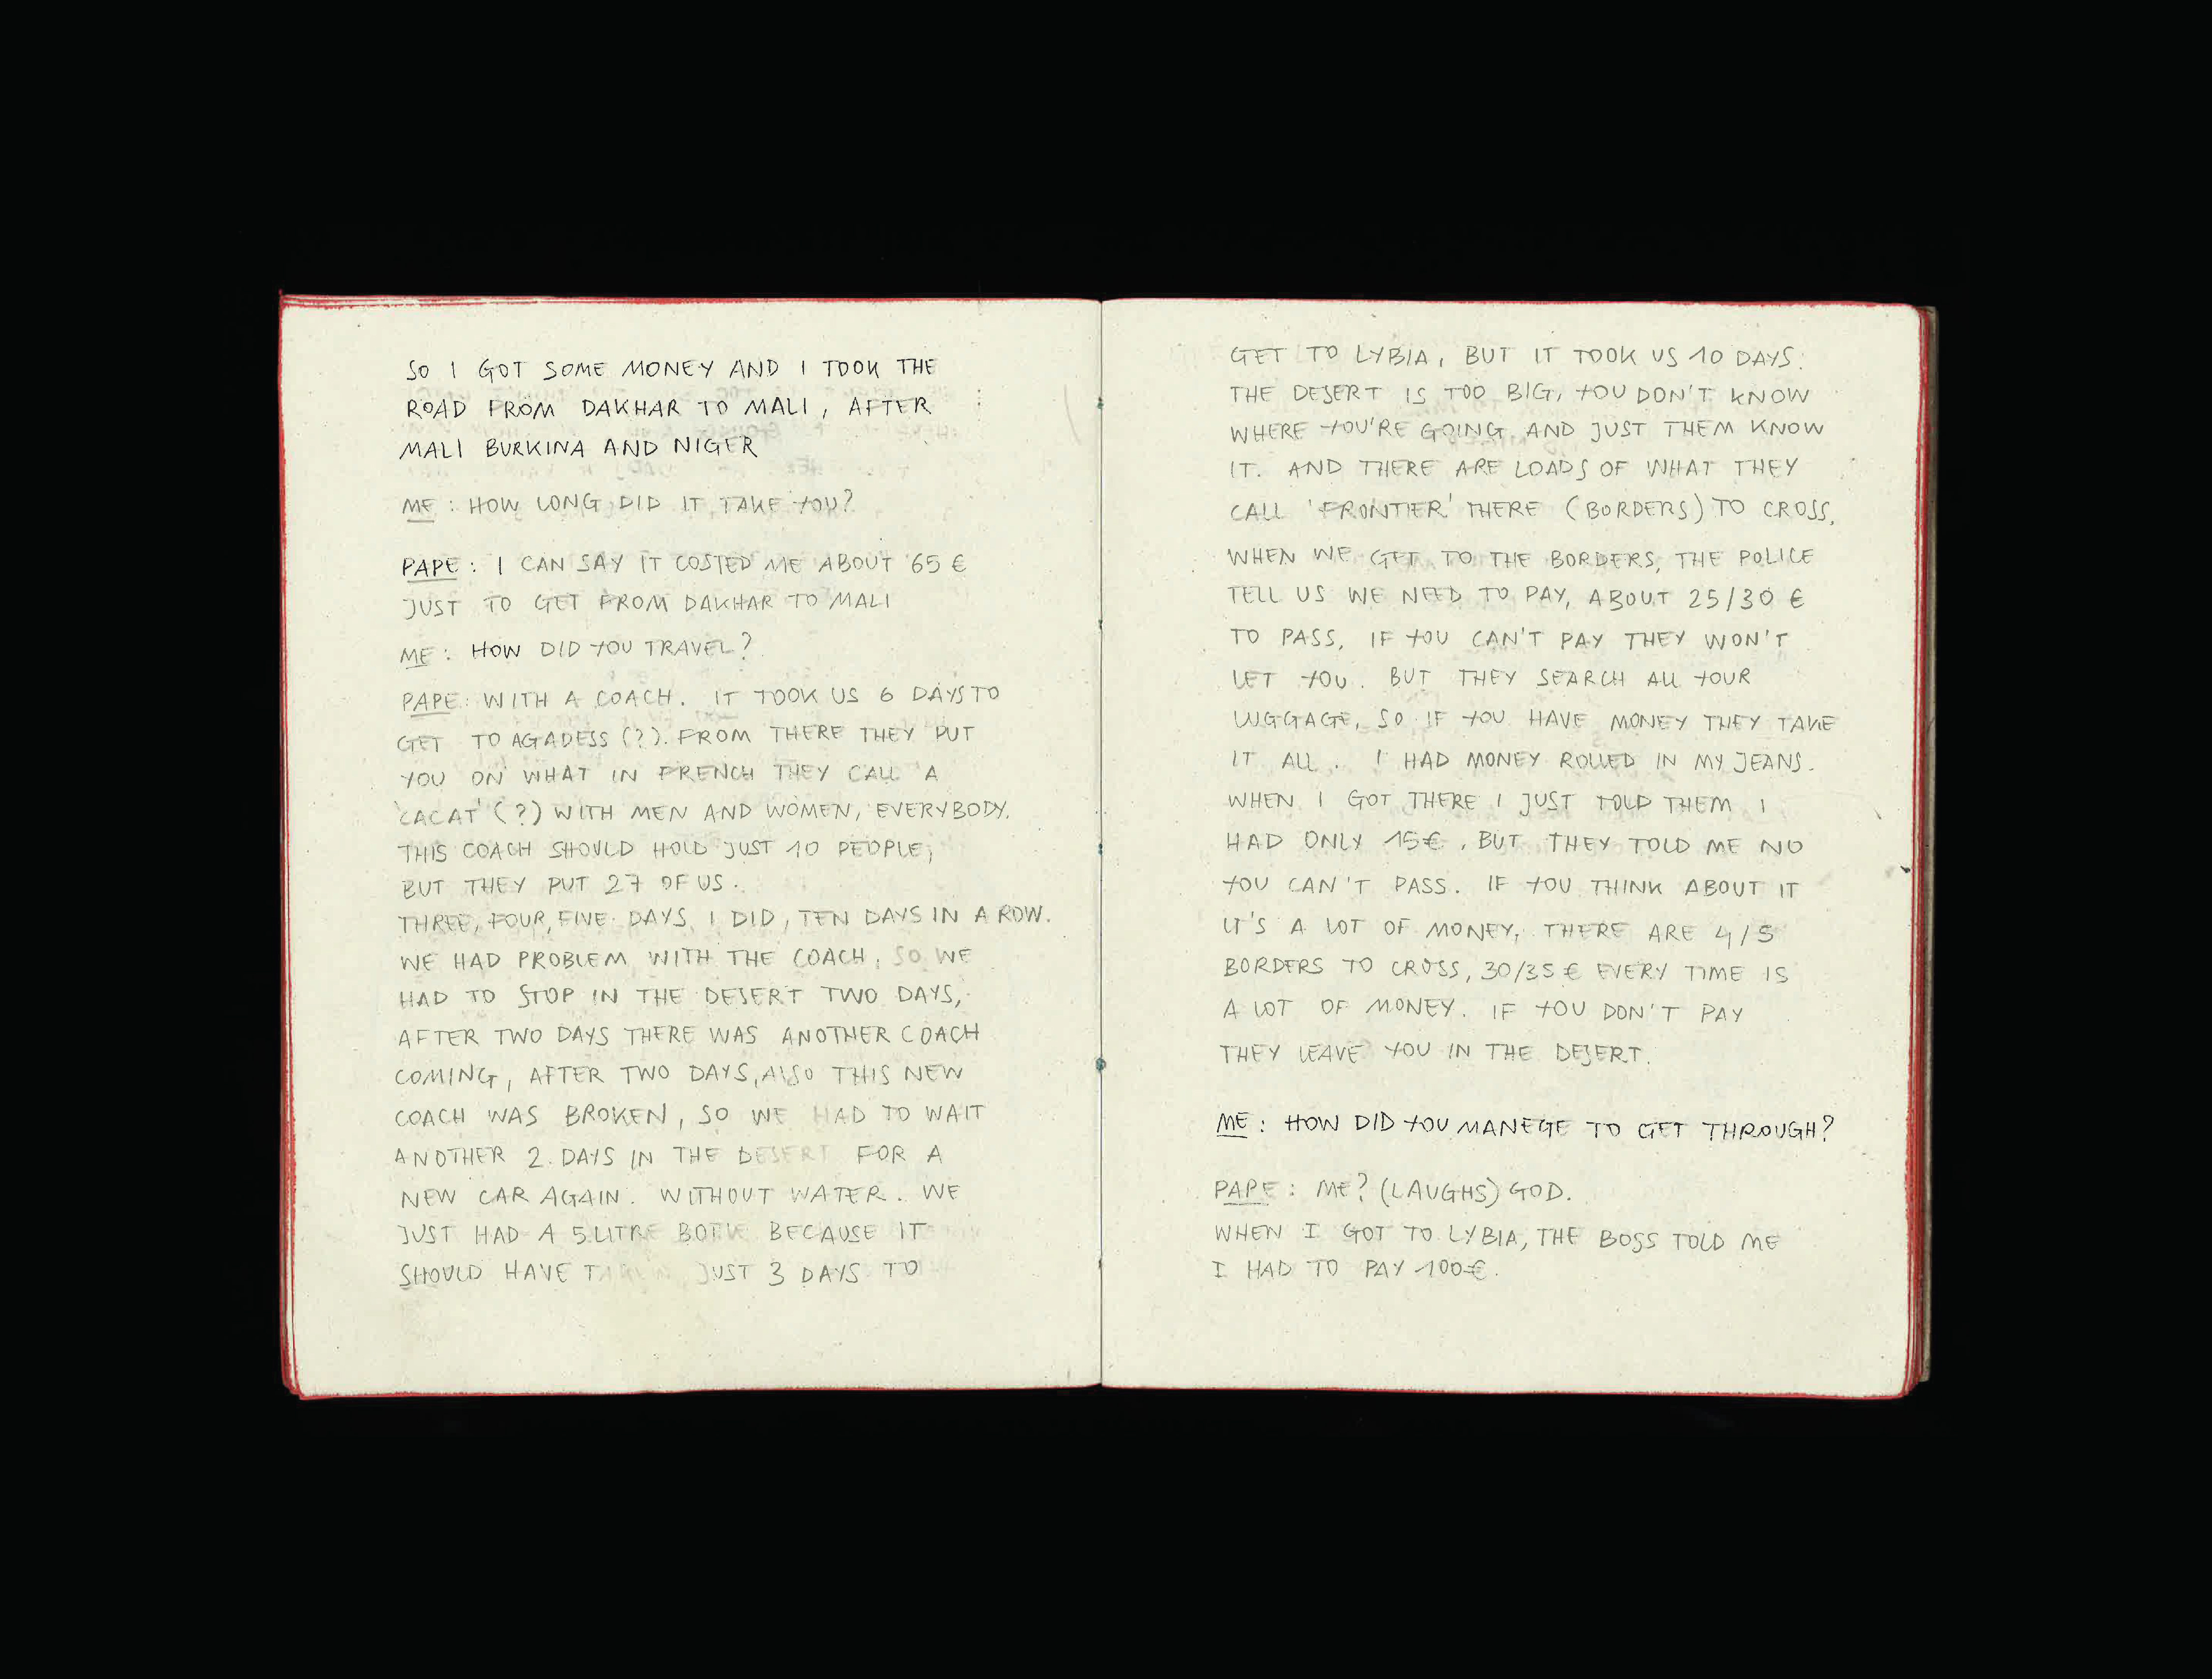 SO I GOT SOME MONEY AND I TOOK THE
ROAD FROM DAKHAR TO MALI, AFTER
MALI BURKINA AND NIGER
ME: HOW LONG DID IT TAKE YOU?
PAPE: I CAN SAY IT COSTED ME ABOUT 65 €
JUST TO GET FROM DAKHAR TO MALI
ME: HOW DID YOU TRAVEL?
PAPE: WITH A COACH. IT TOOK US 6 DAYS TO
GET TO AGADESS (?). FROM THERE THEY PUT
YOU ON WHAT IN FRENCH THEY CALL A
'CACAT' (?) WITH MEN AND WOMEN, EVERYBODY.
THIS COACH SHOULD HOLD JUST 10 PEOPLE,
BUT THEY PUT 27 OF US.
THREE, FOUR, FIVE DAYS, I DID, TEN DAYS IN A ROW.
WE HAD PROBLEM WITH THE COACH, SO WE
HAD TO STOP IN THE DESERT TWO DAYS,
AFTER TWO DAYS THERE WAS ANOTHER COACH
COMING, AFTER TWO DAYS, ALSO THIS NEW
COACH WAS BROKEN, SO WE HAD TO WAIT
ANOTHER 2 DAYS IN THE DESERT FOR A
NEW CAR AGAIN. WITHOUT WATER. WE
JUST HAD A 5 LITRE BOTLE BECAUSE IT
SHOULD HAVE TAKEN JUST 3 DAYS TO
GET TO LYBIA, BUT IT TOOK US 10 DAYS.
THE DESERT IS TOO BIG, YOU DON'T KNOW
WHERE YOU'RE GOING AND JUST THEM KNOW
IT. AND THERE ARE LOADS OF WHAT THEY
CALL 'FRONTIER' THERE (BORDERS) TO CROSS.
WHEN WE GET TO THE BORDERS, THE POLICE
TELL US WE NEED TO PAY, ABOUT 25/30 €
TO PASS, IF YOU CAN'T PAY THEY WON'T
LET YOU. BUT THEY SEARCH ALL YOUR
LUGGAGE, SO IF YOU HAVE MONEY THEY TAKE
IT ALL. I HAD MONEY ROLLED IN MY JEANS.
WHEN I GOT THERE I JUST TOLD THEM I
HAD ONLY 15€, BUT THEY TOLD ME NO
YOU CAN'T PASS. IF YOU THINK ABOUT IT
IT'S A LOT OF MONEY, THERE ARE 4/5
BORDERS TO CROSS, 30/35 € EVERY TIME IS
A LOT OF MONEY. IF YOU DON'T PAY
THEY LEAVE YOU IN THE DESERT.
ME: HOW DID YOU MANEGE TO GET THROUGH?
PAPE: ME? (LAUGHS) GOD.
WHEN I GOT TO LYBIA, THE BOSS TOLD ME
I HAD TO PAY 100€.